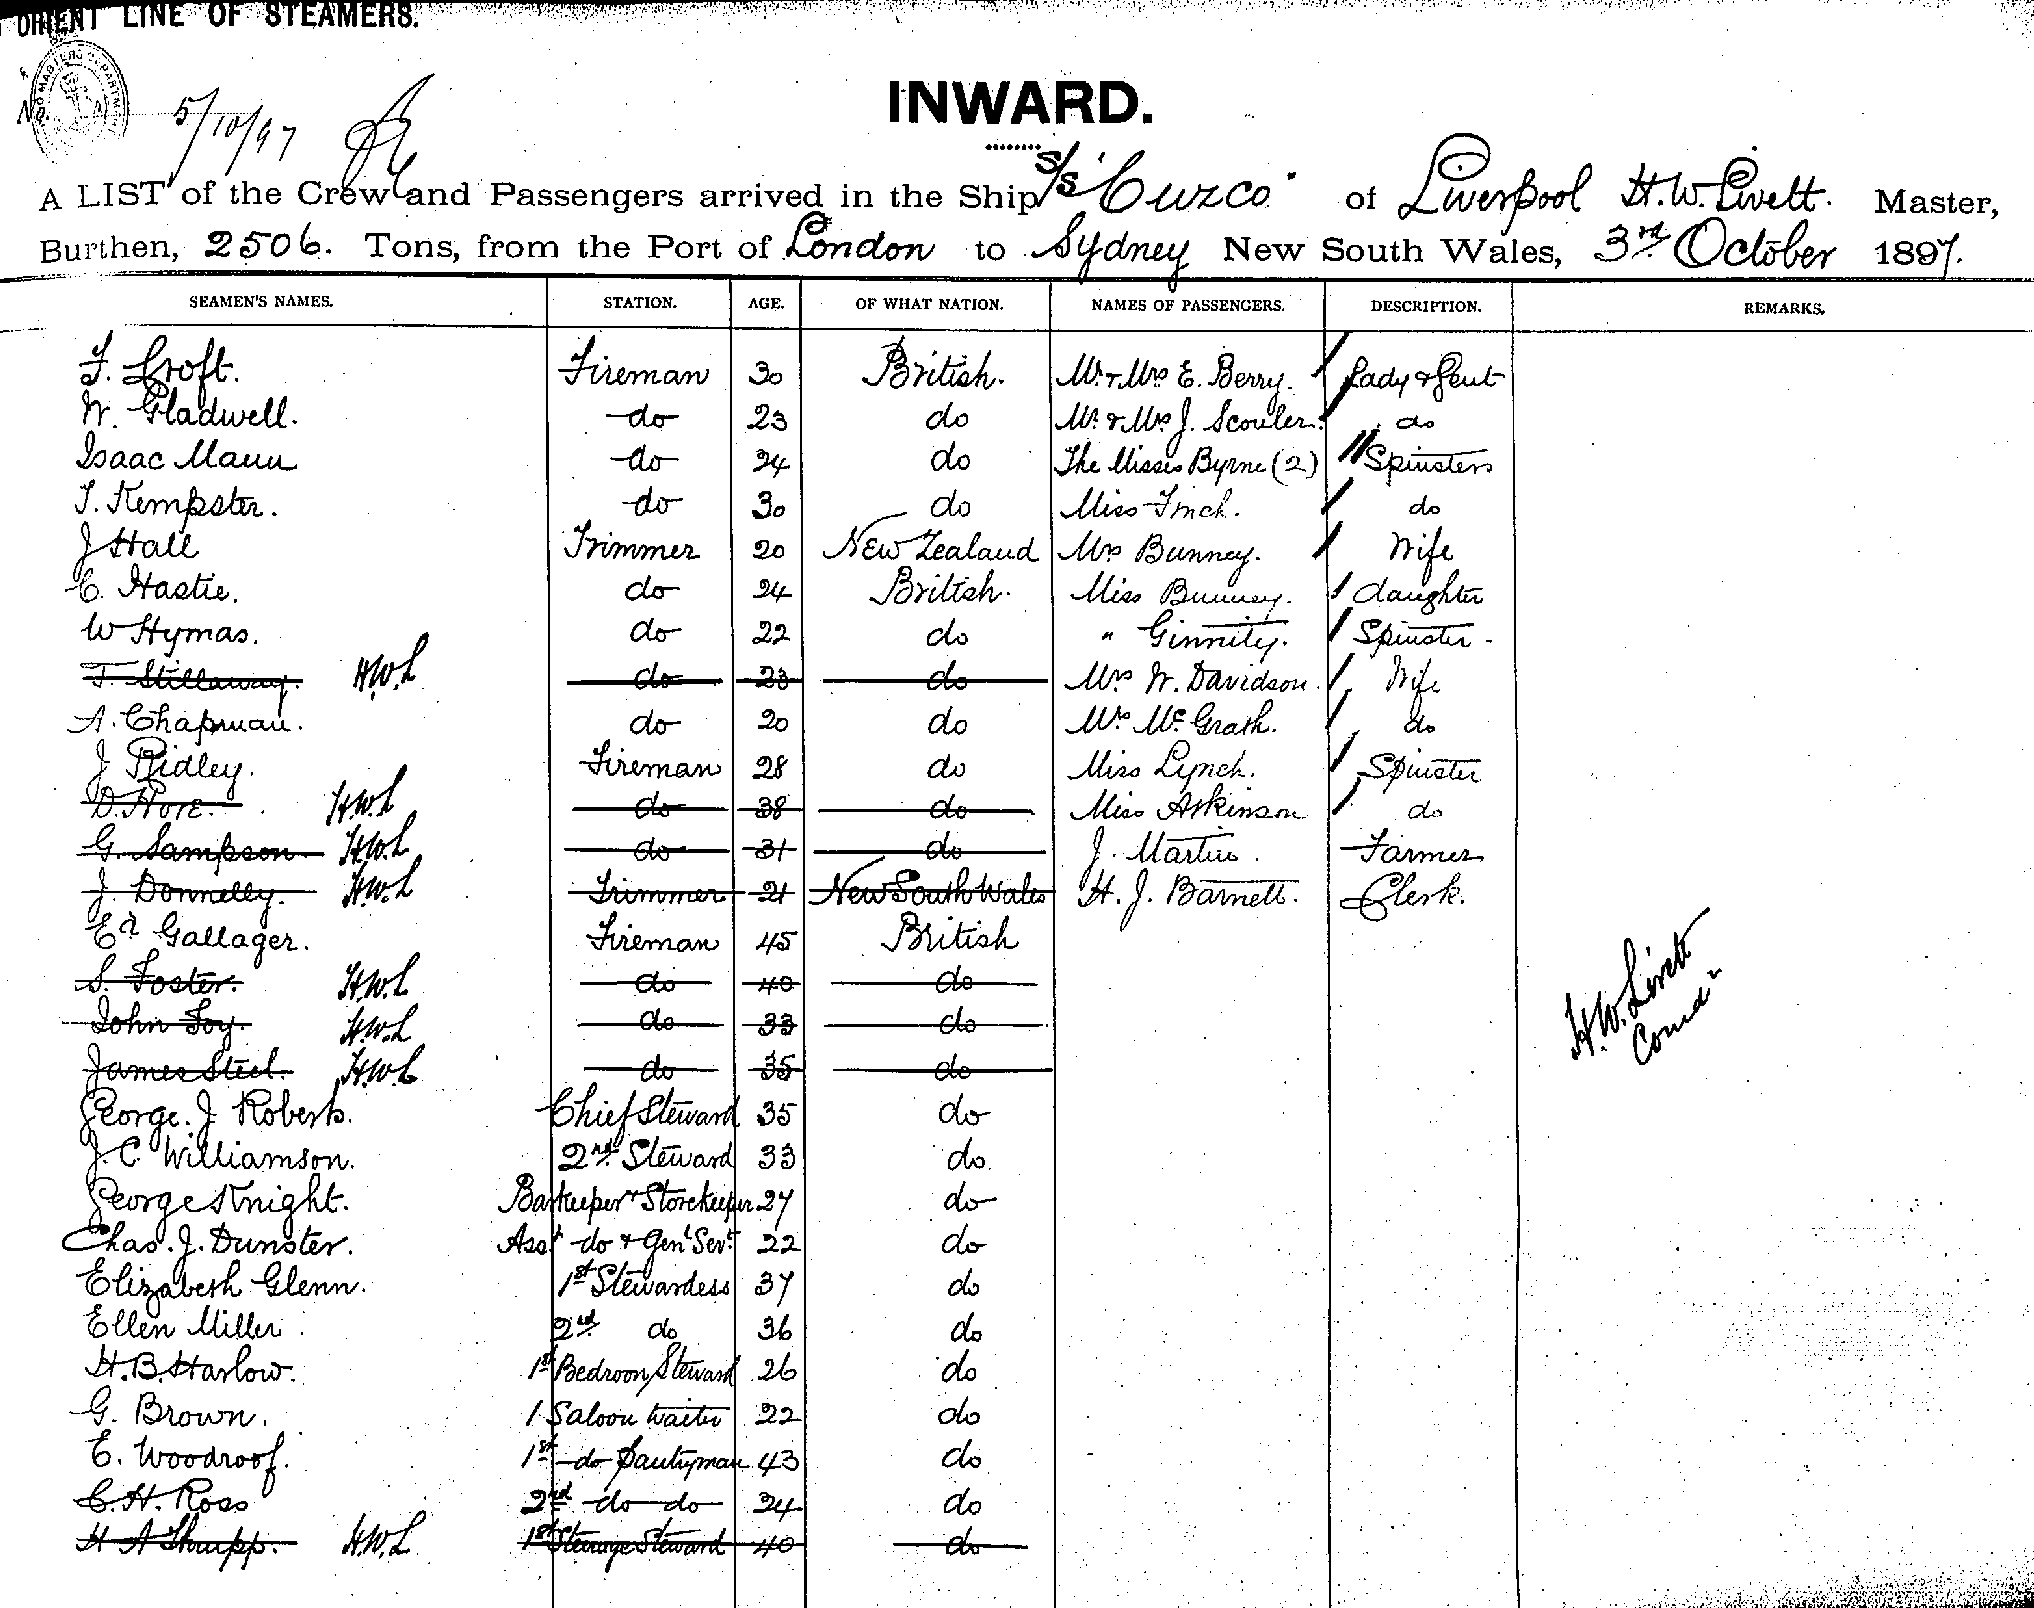 ORIENT LINE OF STEAMERS.
5/10/97
INWARD.
A LIST of the Crew and Passengers arrived in the Ship S/S "Cuzco" of Liverpool H.W. Livett. Master,
Burthen, 2506. Tons, from the Port of London to Sydney New South Wales, 3rd October 1897.
SEAMEN'S NAMES. STATION. AGE. OF WHAT NATION. NAMES OF PASSENGERS. DESCRIPTION. REMARKS.
F. Croft. Fireman 30 British. Mr & Mrs E. Berry. Lady & Gent
W. Gladwell. do 23 do Mr & Mrs J. Scouler. do
Isaac Mann do 24 do The Misses Byrne (2) Spinsters
T. Kempster. do 30 do Miss Finch. do
J Hall Trimmer 20 New Zealand Mrs Bunney. Wife
C. Hastie. do 24 British. Miss Bunney. daughter
W Hymas. do 22 do " Ginnity. Spinster
T. Stillaway. H.W.L do 23 do Mrs W. Davidson. Wife
A. Chapman. do 20 do Mrs McGrath. do
J Ridley. Fireman 28 do Miss Lynch. Spinster
D. Hore. H.W.L do 38 do Miss Atkinson do
G. Sampson H.W.L do 31 do J. Martin. Farmer
J. Donnelly. H.W.L Trimmer 21 New South Wales H. J. Barnett. Clerk.
Ed Gallager. Fireman 45 British
S. Foster. H.W.L do 40 do
John Foy. H.W.L do 33 do
James Steel. H.W.L do 35 do
H.W. Livett
Comdr
George. J Roberts. Chief Steward 35 do
J. C. Williamson. 2nd Steward 33 do.
George Knight. Barkeeper & Storekeeper 27 do
Chas. J. Dunster. Asst do & Genl Servt 22 do
Elizabeth Glenn. 1st Stewardess 37 do
Ellen Miller. 2nd do 36 do
H. B. Harlow. 1st Bedroom Steward 26 do
G. Brown. 1 Saloon Waiter 22 do
E. Woodroof. 1st do Pantryman 43 do
C. H. Ross 2nd do do 24 do
H A Thrupp. H.W.L 1st Steerage Steward 40 do